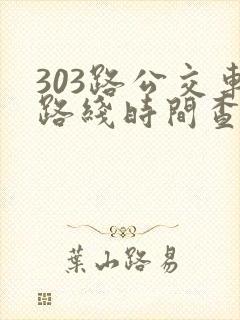 303路公交車
路綫時間查
葉山路易